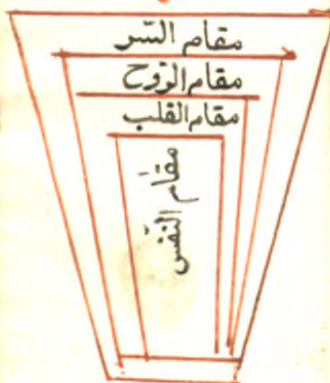 مقام السّر
مقام الرّوح
مقام القلب
مقام النّفس